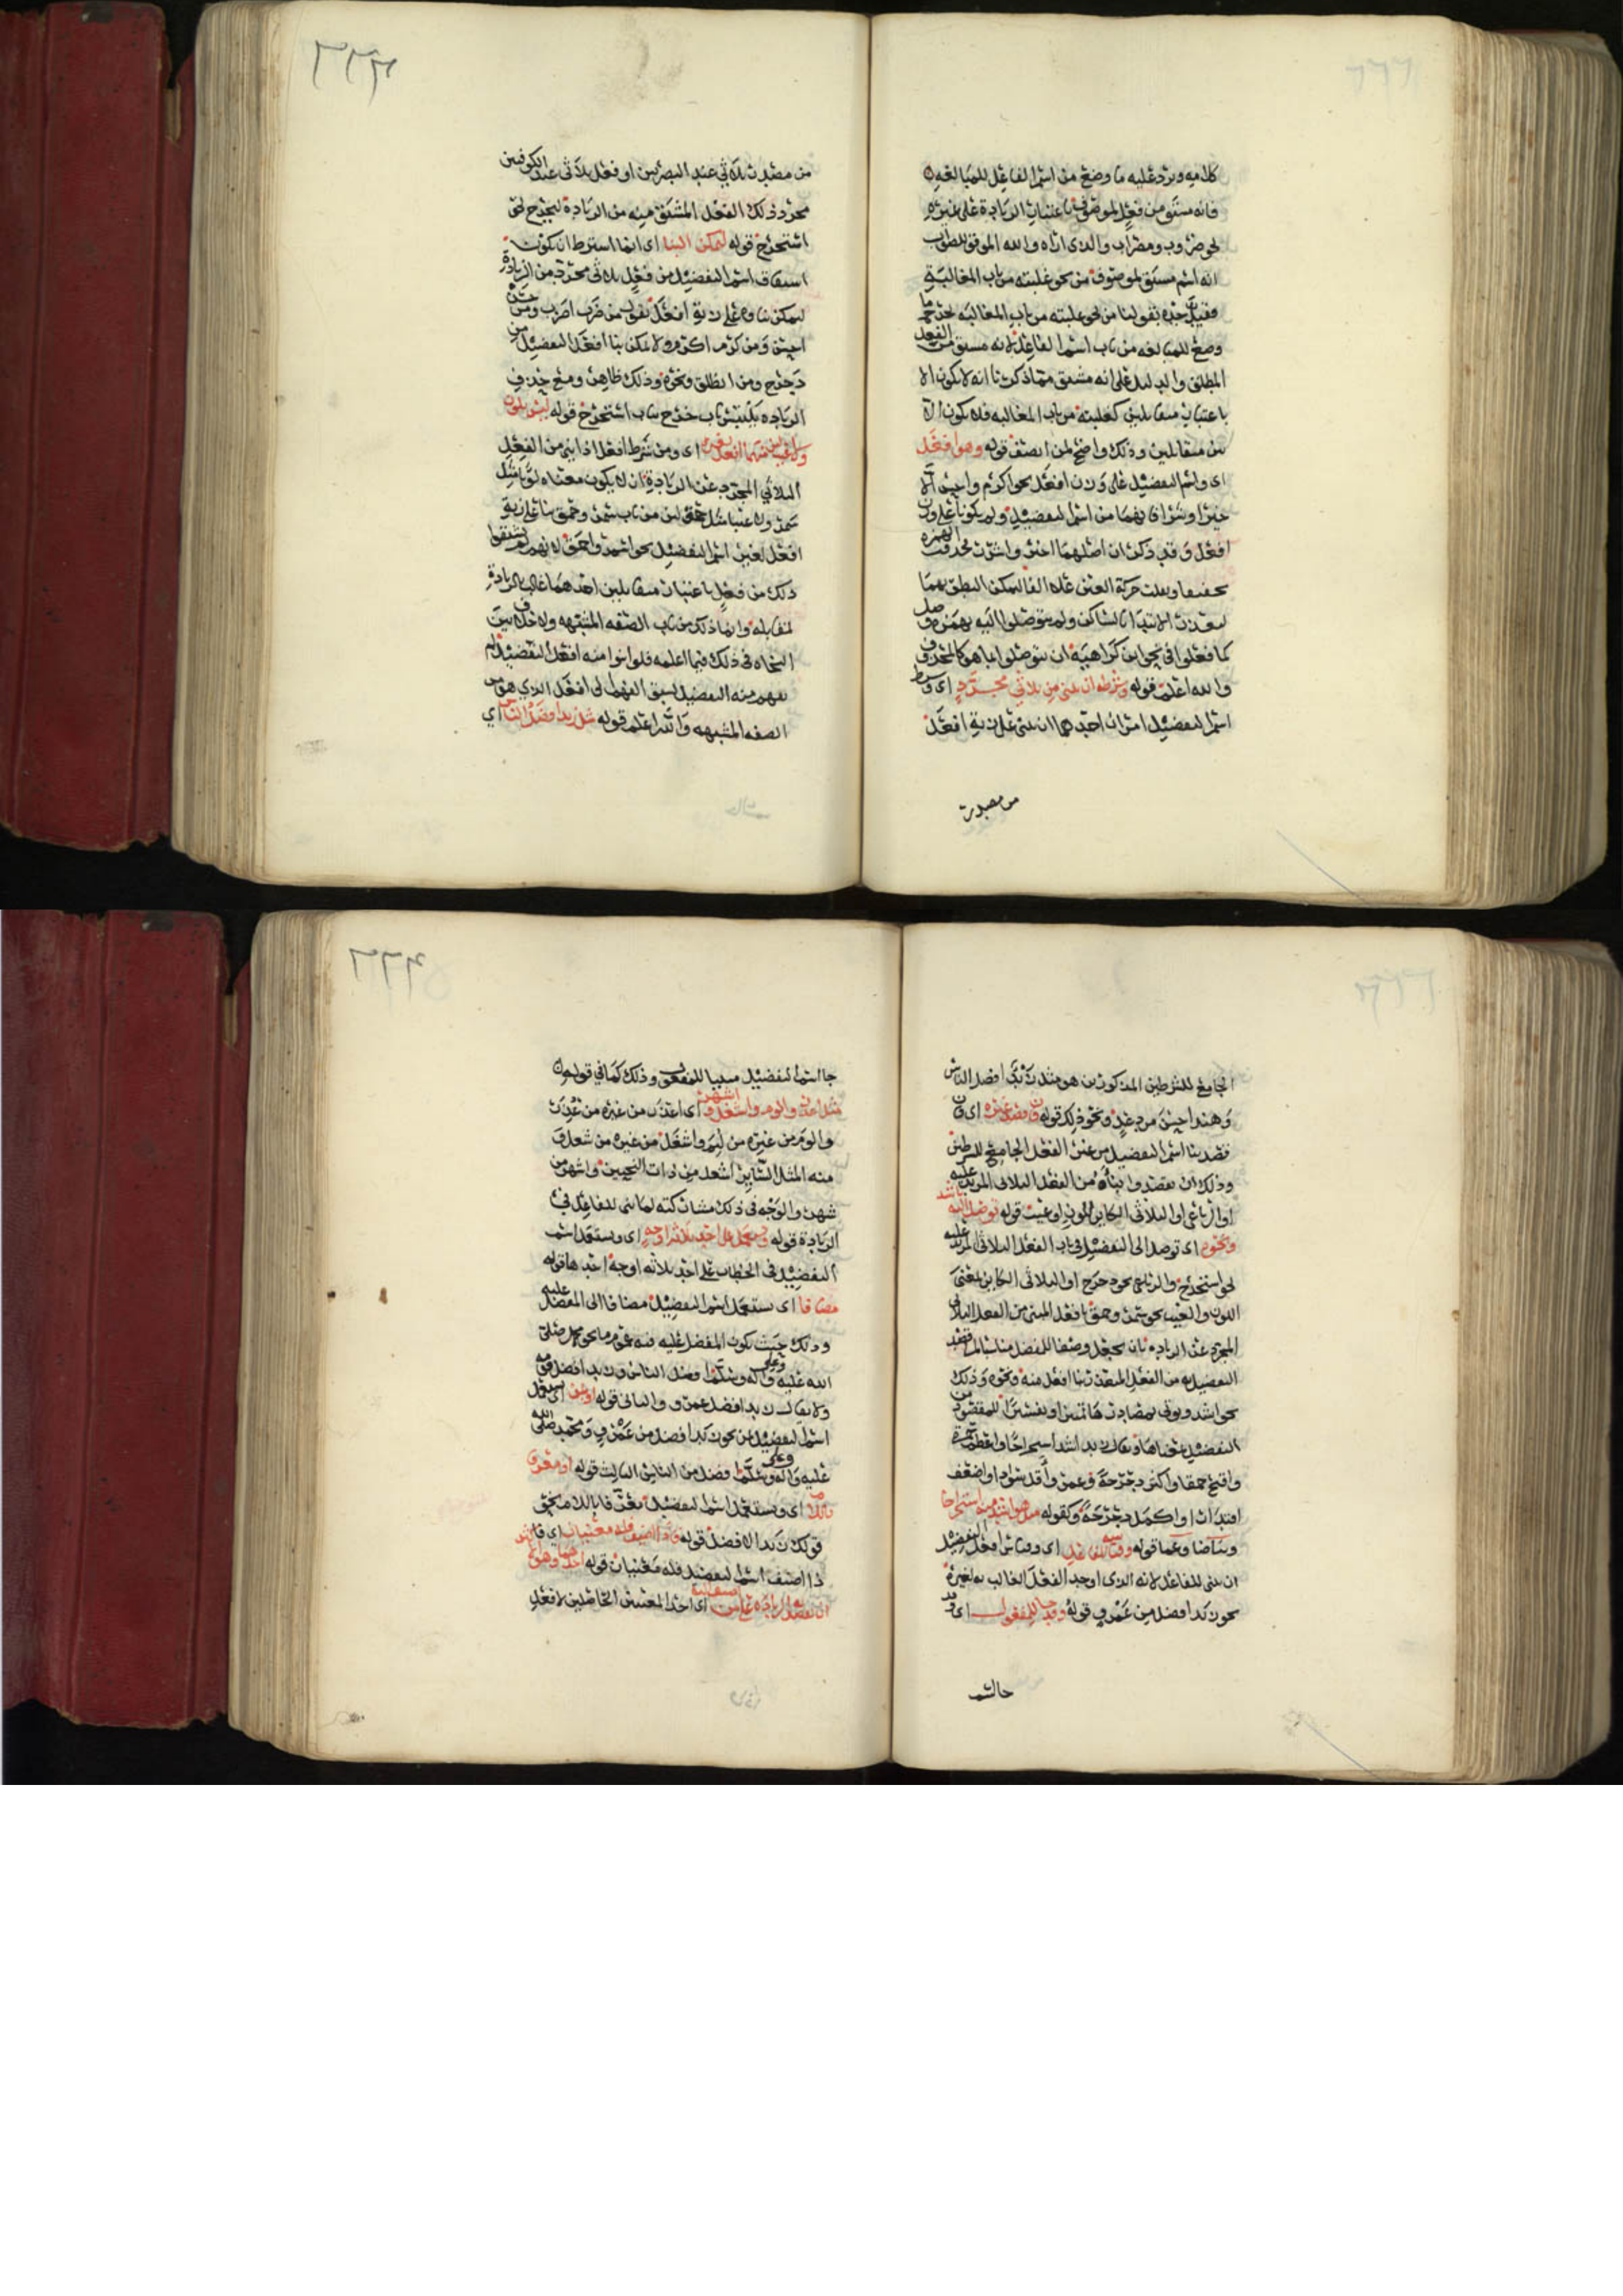 كلامه ويرد عليه ما وضع من اسم الفاعل للمبالغه
فانه مشتق من فعل لموصوف باعتبار الزيادة على غيره
نحو ضروب ومضراب والذي اراه والله الموفق للصواب
انه اسم مشتق لموصوف من نحو غلبته من باب المغالبة
فقيل حده بقولنا من نحو غلبته من باب المغالبه
وضع للمبالغه من باب اسم الفاعل لانه مشتق من الفعل
المطلق والدليل على انه مشتق مما ذكرنا انه لا يكون الا
باعتبار متقابلين كغلبته من باب المغالبه فلا يكون الا
بين متقابلين وذلك واضح لمن انصف قوله وهو افعل
اي واسم التفضيل على وزن افعل نحو اكرم واحسن الا
خيرا وشرا فانهما من اسم التفضيل ولم يكونا على وزن
افعل وقد ذكر ان اصلهما اخير واشرر فحذفت الهمزة
تخفيفا ونقلت حركة العين على الفا ليمكن النطق بهما
لتعذر الابتدا بالساكن ولم يتوصلوا اليه بهمزة وصل
كما فعلوا في نحو ابن كراهية ان يتوصلوا بما هو كالمحذوف
والله اعلم قوله وشرطه ان يبنى من ثلاثي مجرد اي وشرط
اسم التفضيل امران احدهما ان يبنى على زنة افعل
من مصدر
٢٢٢
من مصدر ثلاثي عند البصريين او فعل ثلاثي عند الكوفيين
مجرد ذلك الفعل المشتق منه من الزيادة ليخرج نحو
استخرج قوله ليمكن البنا اي انما اشترط ان يكون
اشتقاق اسم التفضيل من فعل ثلاثي مجرد من الزيادة
ليمكن بناوه على زنة افعل تقول من ضرب اضرب ومن حسن
احسن ومن كرم اكرم ولا يمكن بنا افعل التفضيل من
دحرج ومن انطلق ونحوه وذلك ظاهر ومع حذف
الزياده يلتبس باب خرج بباب استخرج قوله ليس بلون
ولا عيب لان منهما افعل لغيره اي ومن شرط افعل اذا ابني من الفعل
الثلاثي المجرد عن الزيادة ان لا يكون معناه لونا مثل
سمر ولا عيبا مثل حمق لان من باب سمر وحمق بنا على زنة
افعل لغير اسم التفضيل نحو اسمر واحمق لانهم لم يشتقوا
ذلك من فعل باعتبار متقابلين احدهما غالب بالزيادة
لمقابله وانما ذلك من باب الصفه المشبهه ولا خلاف بين
النحاه في ذلك فيما اعلمه فلو بنوا منه افعل التفضيل لم
يفهم منه التفضيل لسبق الفهم الى افعل الذي هو من
الصفه المشبهه والله اعلم قوله مثل زيد افضل الناس اي
الجامع للشرطين المذكورين هو مثل زيد افضل الناس
وهند احسن من دعد ونحو ذلك قوله فان قصد غيره اي فان
قصد بنا اسم التفضيل من غير الفعل الجامع للشرطين
وذلك ان يقصدوا بناه من الفعل الثلاثي المزيد عليه
او الرباعي او الثلاثي الكاين للون او عيب قوله توصل اليه باشد
ونحوه اي توصل الى التفضيل في باب الفعل الثلاثي المزيد عليه
نحو استخرج والرباعي نحو دحرج او الثلاثي الكاين بمعنى
اللون والعيب نحو سمر وحمق بافعل المبني من الفعل الثلاثي
المجرد عن الزياده بان يجعل وصفا للمفضل مناسبا لما قصد
التفضيل به من الفعل المتعذر بنا افعل منه ونحوه وذلك
نحو اشد ويوتى بمصادرها تمييزا وتفسيرا للمقصود من
التفضيل بمعناها فيقال زيد اشد استخراجا واعظم سمرة
واقبح حمقا واكثر دحرجة وعمرو اقل سوادا واضعف
اقتدارا واكمل دحرجة وكقوله مثل هو اشد منه استخراجا
وبياضا وعما قوله وقياسه للفاعل اي وقياس افعل التفضيل
ان يبنى للفاعل لانه الذي اوجد الفعل الغالب به لغيره
نحو زيد افضل من عمرو قوله وقد جا للمفعول اي وقد
جا اسم
٢٢٣
جا اسم التفضيل مبنيا للمفعول وذلك كما في قولهم
مثل اعذر والوم واشغل واشهر اي اعذر من غيره من عذر
والوم من غيره من ليم واشغل من غيره من شغل وفي
منه المثل الساير اشغل من ذات النحيين واشهر من
شهر والوجه في ذلك مشاركته لما بني للفاعل في
الزيادة قوله ويستعمل على احد ثلاثه اوجه اي ويستعمل اسم
التفضيل في الخطاب على احد ثلاثه اوجه احدها قوله
مضافا اي يستعمل اسم التفضيل مضافا الى المفضل عليه
وذلك حيث يكون المفضل عليه فيه عموم ما نحو محمد صلى
الله عليه وعلى اله وسلم افضل الناس وزيد افضل قومه
ولا يقال زيد افضل عمرو والثاني قوله او بمن اي يستعمل
اسم التفضيل بمن نحو زيد افضل من عمرو ومحمد صلى الله
عليه وعلى اله وسلم افضل من الناس الثالث قوله او معرفا
باللام اي ويستعمل اسم التفضيل معرفا باللام نحو
قولك زيد الافضل قوله واذا اضيف فله معنيان اي فا
ذا اضيف اسم التفضيل فله معنيان قوله احدهما وهو الاكثر
ان تقصد به الزياده على من اضيف اليه اي احد المعنيين الحاصلين لافعل